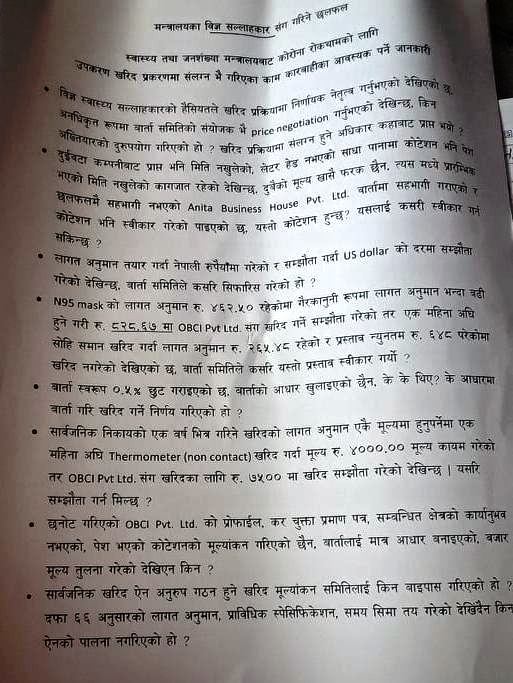 मन्त्रालयका विज्ञ सल्लाहकार संग गरिने छलफल
स्वास्थ्य तथा जनशंख्या मन्त्रालयबाट कोरोना रोकथामको लागि
उपकरण खरिद प्रकरणमा संलग्न भै गरिएका काम कारवाहीका आवस्यक पर्ने जानकारी
• विज्ञ स्वास्थ्य सल्लाहकारको हैसियतले खरिद प्रक्रियामा निर्णायक नेतृत्व गर्नुभएको देखिएको छ,
अनधिकृत रूपमा वार्ता समितिको संयोजक भै price negotiation गर्नुभएको देखिन्छ, किन
अख्तियारको दुरुपयोग गरिएको हो ? खरिद प्रक्रियामा संलग्न हुने अधिकार कहाबाट प्राप्त भयो ?
• दुईवटा कम्पनीबाट प्राप्त भनि मिति नखुलेको, लेटर हेड नभएको साधा पानामा कोटेशन भनि पेश
भएको मिति नखुलेको कागजात रहेको देखिन्छ, दुवैको मूल्य खासै फरक छैन, त्यस मध्ये प्रारम्भिक
छलफलमै सहभागी नभएको Anita Business House Pvt. Ltd. वार्तामा सहभागी गराएको र
कोटेशन भनि स्वीकार गरेको पाइएको छ, यस्तो कोटेशन हुन्छ? यसलाई कसरी स्वीकार गर्न
सकिन्छ ?
• लागत अनुमान तयार गर्दा नेपाली रुपैयाँमा गरेको र सम्झौता गर्दा US dollar को दरमा सम्झौता
गरेको देखिन्छ, वार्ता समितिले कसरि सिफारिस गरेको हो ?
• N95 mask को लागत अनुमान रु. ४६२.५० रहेकोमा गैरकानुनी रूपमा लागत अनुमान भन्दा बढी
हुने गरी रु. ८२८.६७ मा OBCI Pvt Ltd. संग खरिद गर्ने सम्झौता गरेको तर एक महिना अघि
सोहि समान खरिद गर्दा लागत अनुमान रु. २६५.४८ रहेको र प्रस्ताव न्युनतम रु. ६४८ परेकोमा
खरिद नगरेको देखिएको छ, वार्ता समितिले कसरि यस्तो प्रस्ताव स्वीकार गर्यो ?
• वार्ता स्वरूप ०.५% छुट गराइएको छ, वार्ताको आधार खुलाइएको छैन, के के थिए? के आधारमा
वार्ता गरि खरिद गर्ने निर्णय गरिएको हो ?
• सार्वजनिक निकायको एक वर्ष भित्र गरिने खरिदको लागत अनुमान एकै मूल्यमा हुनुपर्नेमा एक
महिना अघि Thermometer (non contact) खरिद गर्दा मूल्य रु. ४०००.०० मूल्य कायम गरेको
तर OBCI Pvt Ltd. संग खरिदका लागि रु. ७५०० मा खरिद सम्झौता गरेको देखिन्छ | यसरि
सम्झौता गर्न मिल्छ ?
• छनोट गरिएको OBCI Pvt. Ltd. को प्रोफाईल, कर चुक्ता प्रमाण पत्र, सम्बन्धित क्षेत्रको कार्यानुभव
नभएको, पेश भएको कोटेशनको मूल्यांकन गरिएको छैन, वार्तालाई मात्र आधार बनाइएको, बजार
मूल्य तुलना गरेको देखिएन किन ?
• सार्वजनिक खरिद ऐन अनुरुप गठन हुने खरिद मूल्यांकन समितिलाई किन बाइपास गरिएको हो ?
दफा ६६ अनुसारको लागत अनुमान, प्राविधिक स्पेसिफिकेशन, समय सिमा तय गरेको देखिदैन किन
ऐनको पालना नगरिएको हो ?